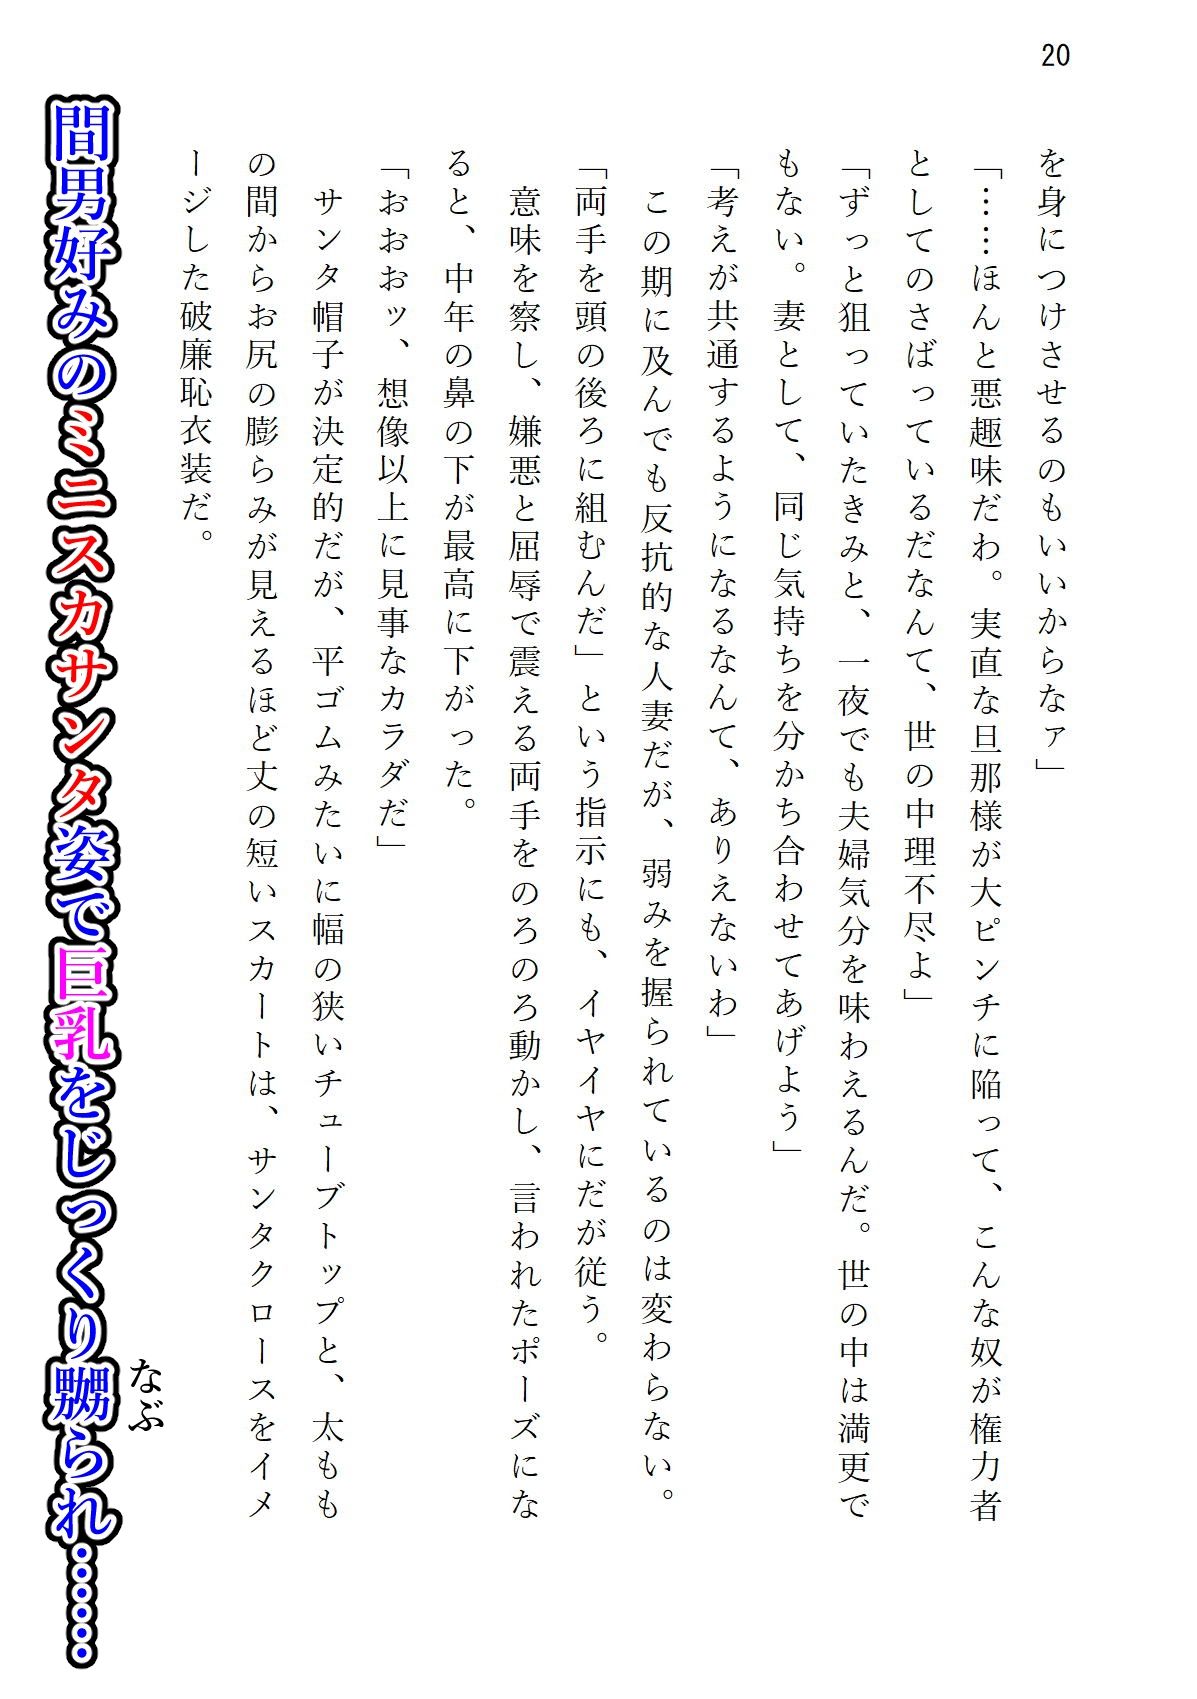 20
を身につけさせるのもいいからなァ」
「……ほんと悪趣味だわ。実直な旦那様が大ピンチに陥って、こんな奴が権力者
としてのさばっているだなんて、世の中理不尽よ」
「ずっと狙っていたきみと、一夜でも夫婦気分を味わえるんだ。世の中は満更で
もない。妻として、同じ気持ちを分かち合わせてあげよう」
「考えが共通するようになるなんて、ありえないわ」
この期に及んでも反抗的な人妻だが、弱みを握られているのは変わらない。
「両手を頭の後ろに組むんだ」という指示にも、イヤイヤにだが従う。
意味を察し、嫌悪と屈辱で震える両手をのろのろ動かし、言われたポーズにな
ると、中年の鼻の下が最高に下がった。
「おおおッ、想像以上に見事なカラダだ」
サンタ帽子が決定的だが、平ゴムみたいに幅の狭いチューブトップと、太もも
の間からお尻の膨らみが見えるほど丈の短いスカートは、サンタクロースをイメ
ージした破廉恥衣装だ。
なぶ
間男好みのミニスカサンタ姿で巨乳をじっくり嬲られ……